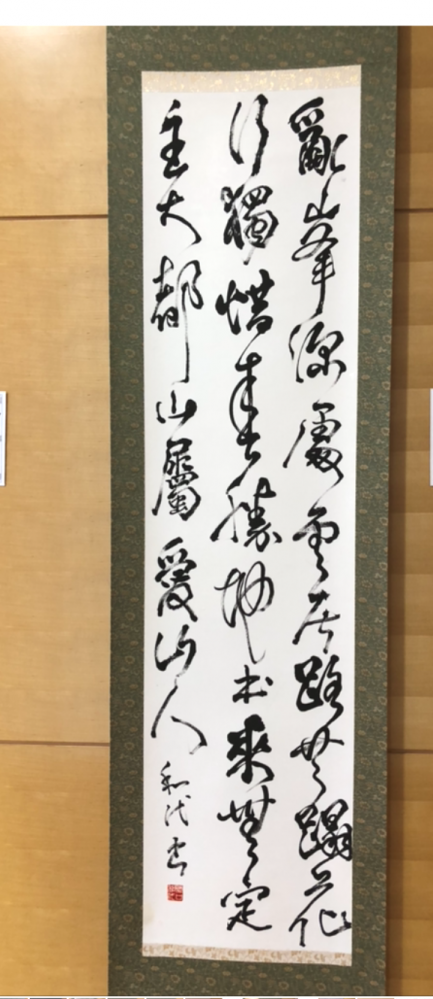 亂峯深處雲居路共蹋花
行獨惜春勝地本來無定
主大都山屬愛山人 和代